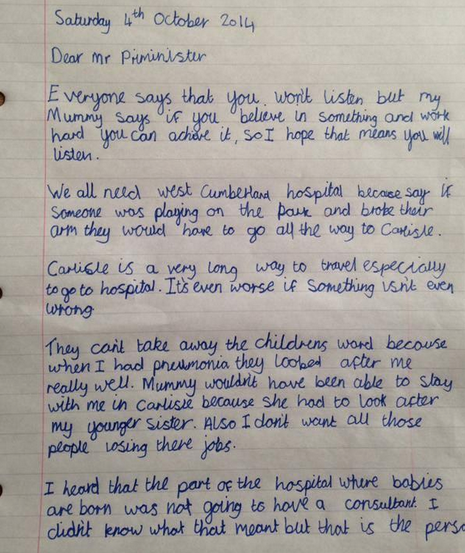 Saturday 4th October 2014
Dear Mr Priminister
Everyone says that you won't listen but my
Mummy says if you believe in something and work
hard you can achive it, so I hope that means you will
listen.
We all need west Cumberland hospital because say if
someone was playing on the park and broke their
arm they would have to go all the way to Carlisle.
Carlisle is a very long way to travel especially
to go to hospital. It's even worse if something isn't even
wrong
They can't take away the childrens ward because
when I had pneumonia they looked after me
really well. Mummy wouldn't have been able to stay
with me in Carlisle because she had to look after
my younger sister. Also I don't want all those
people losing there jobs.
I heard that the part of the hospital where babies
are born was not going to have a consultant I
didn't know what that meant but that is the perso